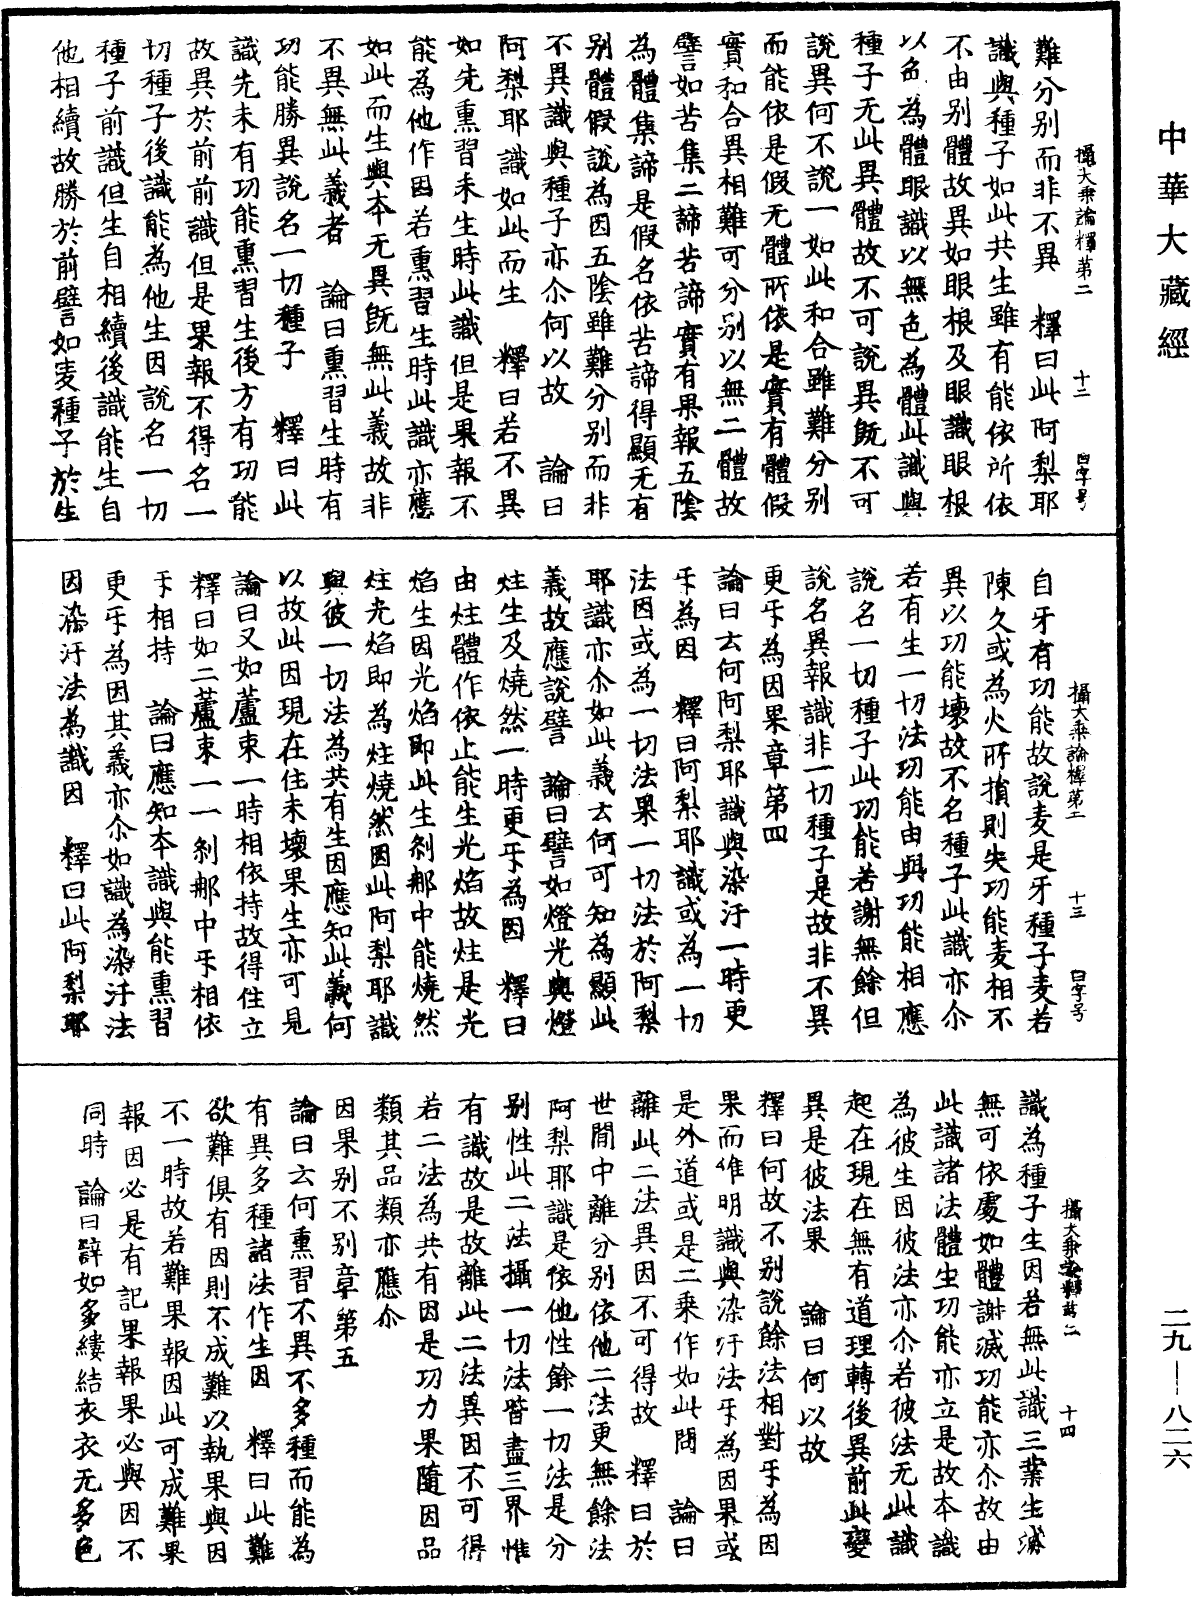 中華大藏經
難分別而非不異　釋曰此阿梨耶
識與種子如此共生雖有能依所依
不由別體故異如眼根及眼識眼根
以色為體眼識以無色為體此識與
種子无此異體故不可說異既不可
說異何不說一如此和合雖難分別
而能依是假无體所依是實有體假
實和合異相難可分別以無二體故
譬如苦集二諦苦諦實有果報五陰
為體集諦是假名依苦諦得顯无有
別體假說為因五陰雖難分別而非
不異識與種子亦尒何以故　論曰
阿梨耶識如此而生　釋曰若不異
如先熏習未生時此識但是果報不
能為他作因若熏習生時此識亦應
如此而生與本无異既無此義故非
不異無此義者　論曰熏習生時有
功能勝異說名一切種子　釋曰此
識先未有功能熏習生後方有功能
故異於前前識但是果報不得名一
切種子後識能為他生因說名一切
種子前識但生自相續後識能生自
他相續故勝於前譬如麦種子於生
攝大乘論釋第二　十二　曰字号
自牙有功能故說麦是牙種子麦若
陳久或為火所損則失功能麦相不
異以功能壞故不名種子此識亦尒
若有生一切法功能由與功能相應
說名一切種子此功能若謝無餘但
說名異報識非一切種子是故非不異
更乎為因果章第四
論曰云何阿梨耶識與染汙一時更
乎為因　釋曰阿梨耶識或為一切
法因或為一切法果一切法於阿梨
耶識亦尒如此義云何可知為顯此
義故應說譬　論曰譬如燈光與燈
炷生及燒然一時更乎為因　釋曰
由炷體作依止能生光焰故炷是光
焰生因光焰即此生剎那中能燒然
炷光焰即為炷燒然因此阿梨耶識
與彼一切法為共有生因應知此義何
以故此因現在住未壞果生亦可見
論曰又如蘆束一時相依持故得住立
釋曰如二蘆束一一剎那中乎相依
乎相持　論曰應知本識與能熏習
更乎為因其義亦尒如識為染汙法
因染汙法為識因　釋曰此阿梨耶
攝大乘論釋第二　十三　曰字号
識為種子生因若無此識三業生滅
無可依處如體謝滅功能亦尒故由
此識諸法體生功能亦立是故本識
為彼生因彼法亦尒若彼法无此識
起在現在無有道理轉後異前此變
異是彼法果　論曰何以故
釋曰何故不別說餘法相對乎為因
果而唯明識與染汙法乎為因果或
是外道或是二乘作如此問　論曰
離此二法異因不可得故　釋曰於
世間中離分別依他二法更無餘法
阿梨耶識是依他性餘一切法是分
別性此二法攝一切法皆盡三界惟
有識故是故離此二法異因不可得
若二法為共有因是功力果隨因品
類其品類亦應尒
因果別不別章第五
論曰云何熏習不異不多種而能為
有異多種諸法作生因　釋曰此難
欲難俱有因則不成難以執果與因
不一時故若難果報因此可成難果
報因必是有記果報果必與因不
同時　論曰譬如多縷結衣衣无多色
攝大乘論釋第二　十四
二九—八二六